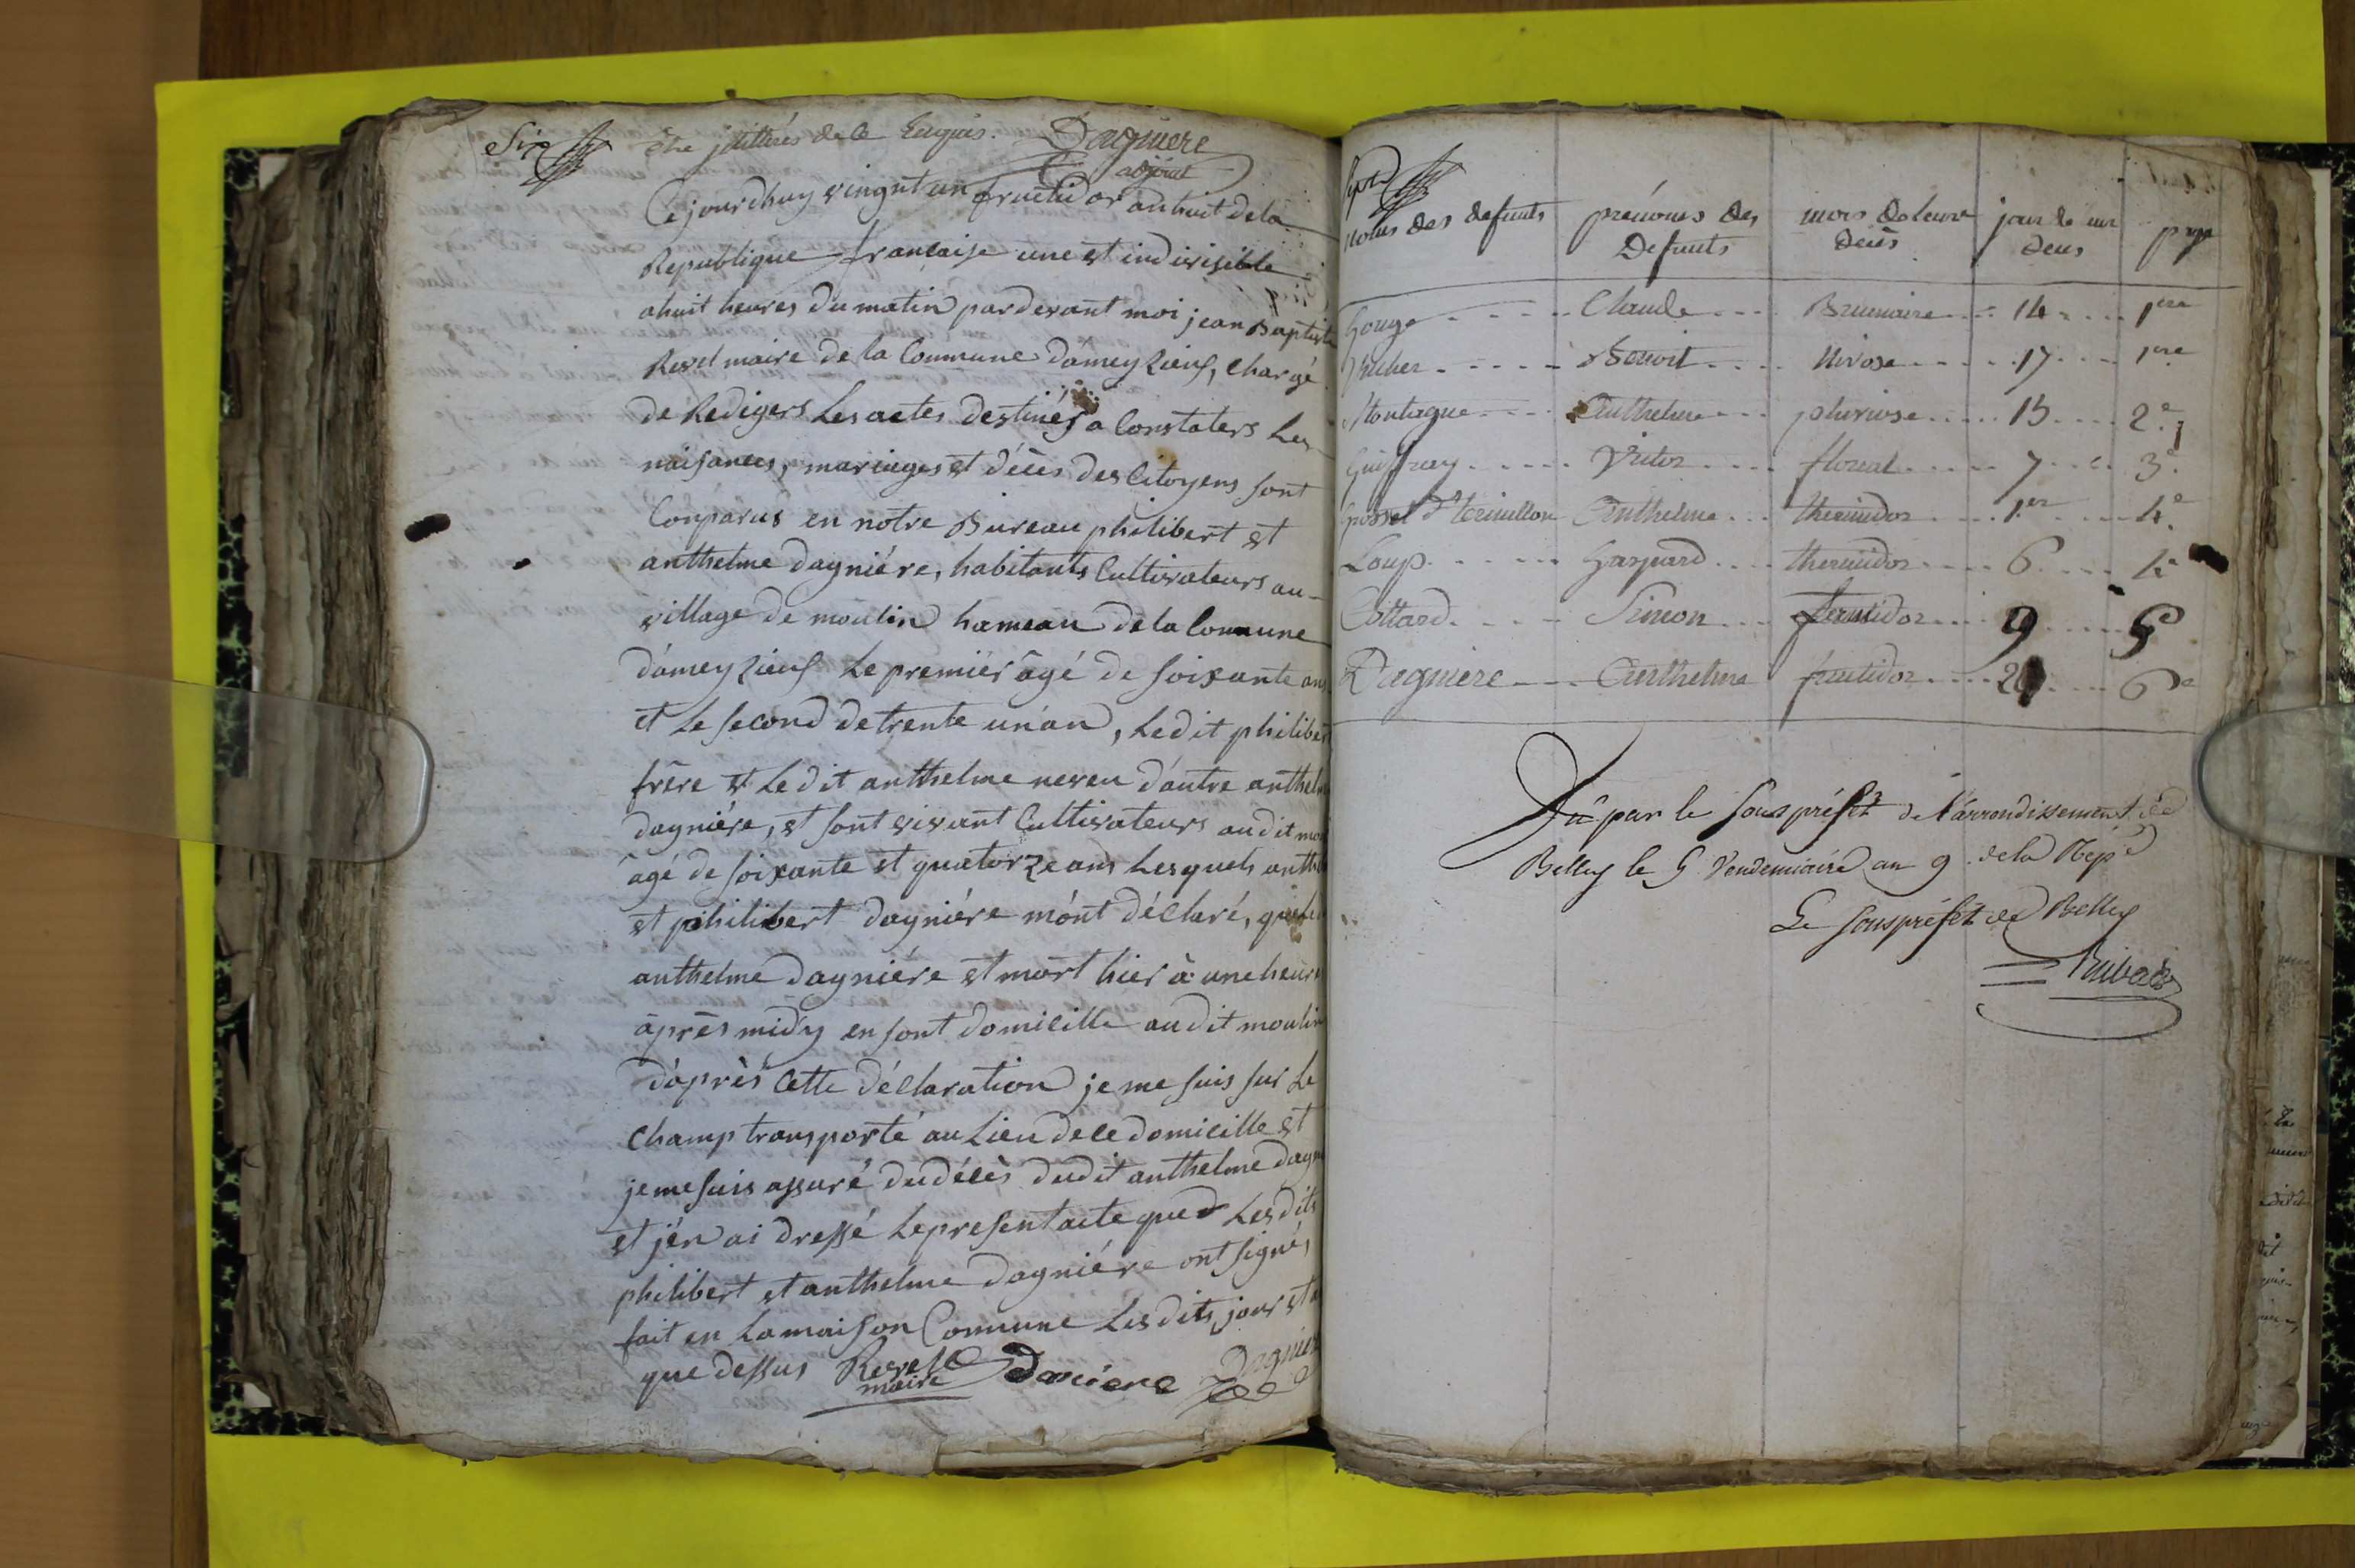 Six
être illitérés de ce Enquis. Dagniere
adjoint
Cejourdhuy vingnt un fructidor an huit dela
Republique francaise une et indivisible
ahuit heures du matin pardevant moi jean Baptiste
Revel maire de la Commune dámeyzieuf, chargé
de Redigers Les actes destinés a Constaters Les
naisances, mariages et décès des Citoyens sont
Conparus en notre Bureau philibert et
anthelme dagniére, habitants Cultivateurs au
village de moulin hameau dela Commune
dámeyzieuf Le premiér âgé de soixante ans
et Le second detrente un an, Ledit philibert
frère et Ledit anthelme neveu dautre anthelme
dagniére, et sont vivant Cultivateurs audit mou
âgé de soixante et quatorze ans Lesquels anthe
et philibert dagniére mónt déclaré, que Le
anthelme dagniére et mort hier à une heure
àprès midy en sont domicille audit moulin
dáprès cette déclaration je me suis sur Le
champ transporté au Lieu dece domicille et
jeme suis assuré dudécès dudit anthelme dagn
et jén ai dressé Lepresent acte que Les dits
philibert et anthelme dagniére ont signé,
fait en La maison Commune Les dits, jour et a
que dessus Revel Daniere Dagniere
maire
Sept
noms des defunts prénoms des Defunts mois deleur décès jour de leur deces page
Gouge Claude Brumaire 14 1ere
Richer Benoit Nivose 17 1ere
Montagne Anthelme pluviose 15 2e
Guiffray Victor floreal 7 3e
Grossel dt Ternillon Anthelme thermidor 1er 4e
Loup Gaspard thermidor 6 4e
Cottard Simon fructidor 9 5e
Dagniere Anthelme fructidor 20 6e
Vû par le sous préfet de l'arrondissement de
Belley le 9 Vendemiaire an 9 dela Répe
Le souspréfet de Belley